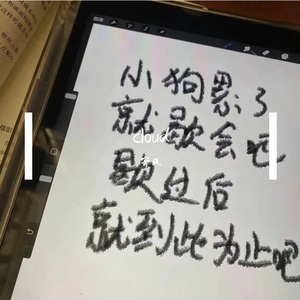 小狗累了
就歇会吧
cloud
歇过后
就到此为止吧